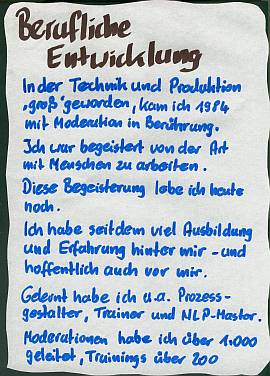 Berufliche
Entwicklung
In der Technik und Produktion
‚groß' geworden, kam ich 1984
mit Moderation in Berührung.
Ich war begeistert von der Art
mit Menschen zu arbeiten.
Diese Begeisterung lebe ich heute
noch.
Ich habe seitdem viel Ausbildung
und Erfahrung hinter mir - und
hoffentlich auch vor mir.
Gelernt habe ich u.a. Prozess-
gestalter, Trainer und NLP-Master.
Moderationen habe ich über 1.000
geleitet, Trainings über 200